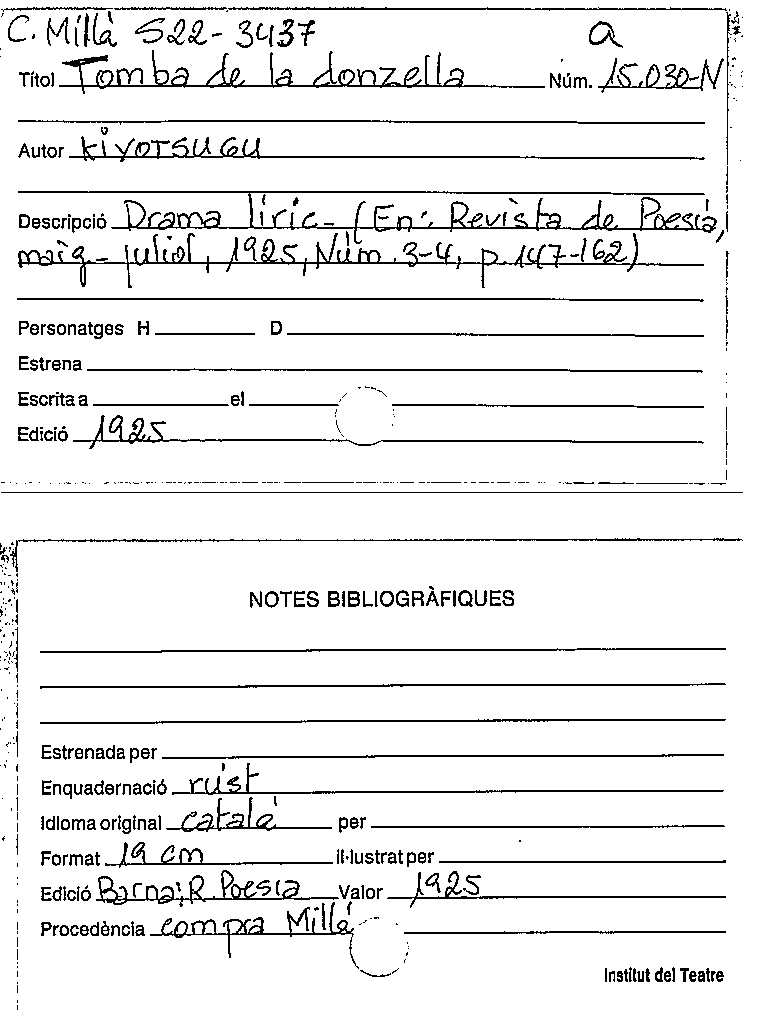 C. Millà S22-3437 a
Títol Tomba de la donzella Núm. 15.030-N
Autor KIYOTSUGU
Descripció Drama líric - (En: Revista de Poesia,
maig - juliol, 1925, Núm. 3-4, p. 147-162)
Personatges H D
Estrena
Escrita a el
Edició 1925
NOTES BIBLIOGRÀFIQUES
Estrenada per
Enquadernació rúst
Idioma original català per
Format 19 cm il·lustrat per
Edició Barna; R. Poesia Valor 1925
Procedència compra Millà
Institut del Teatre